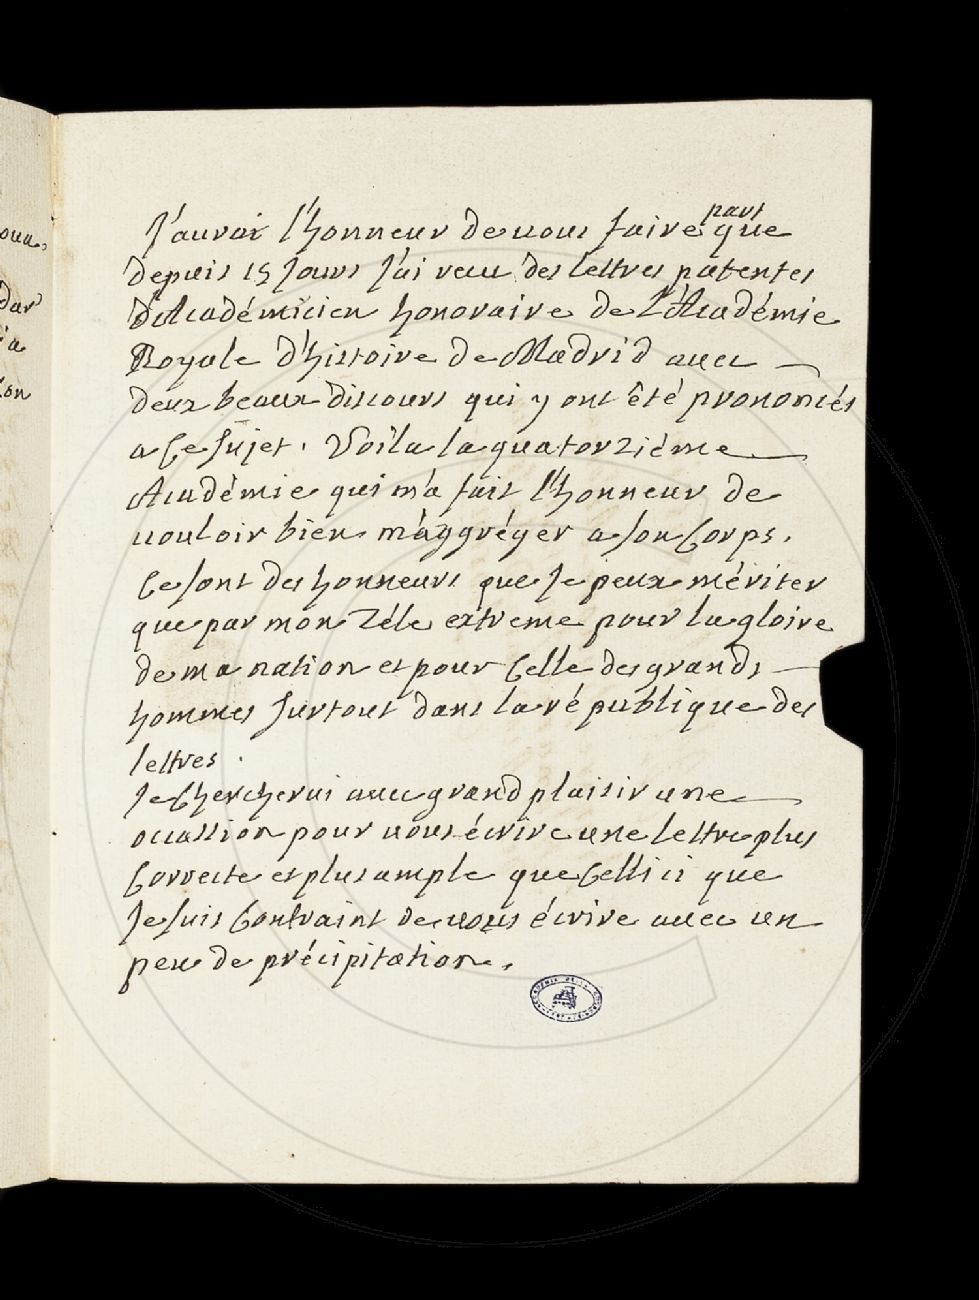 J'aurai l'honneur de vous faire part que
depuis 15 jours j'ai reccu des lettres patentes
d'Académicien honoraire de L'Académie
Royale d'histoire de Madrid avec
deux beaux discours qui y ont êté prononcés
a ce sujet. Voila la quatorzième
Académie qui m'a fait l'honneur de
vouloir bien m'aggréger a son Corps.
Ce sont des honneurs que je peux mériter
que par mon zéle extreme pour la gloire
de ma nation et pour celle des grands
hommes surtout dans la république des
lettres.
Je Chercherai avec grand plaisir une
occassion pour vous écrire une lettre plus
Correcte et plus ample que Celli ci que
Je suis Contraint de vous écrire avec un
peu de précipitation.